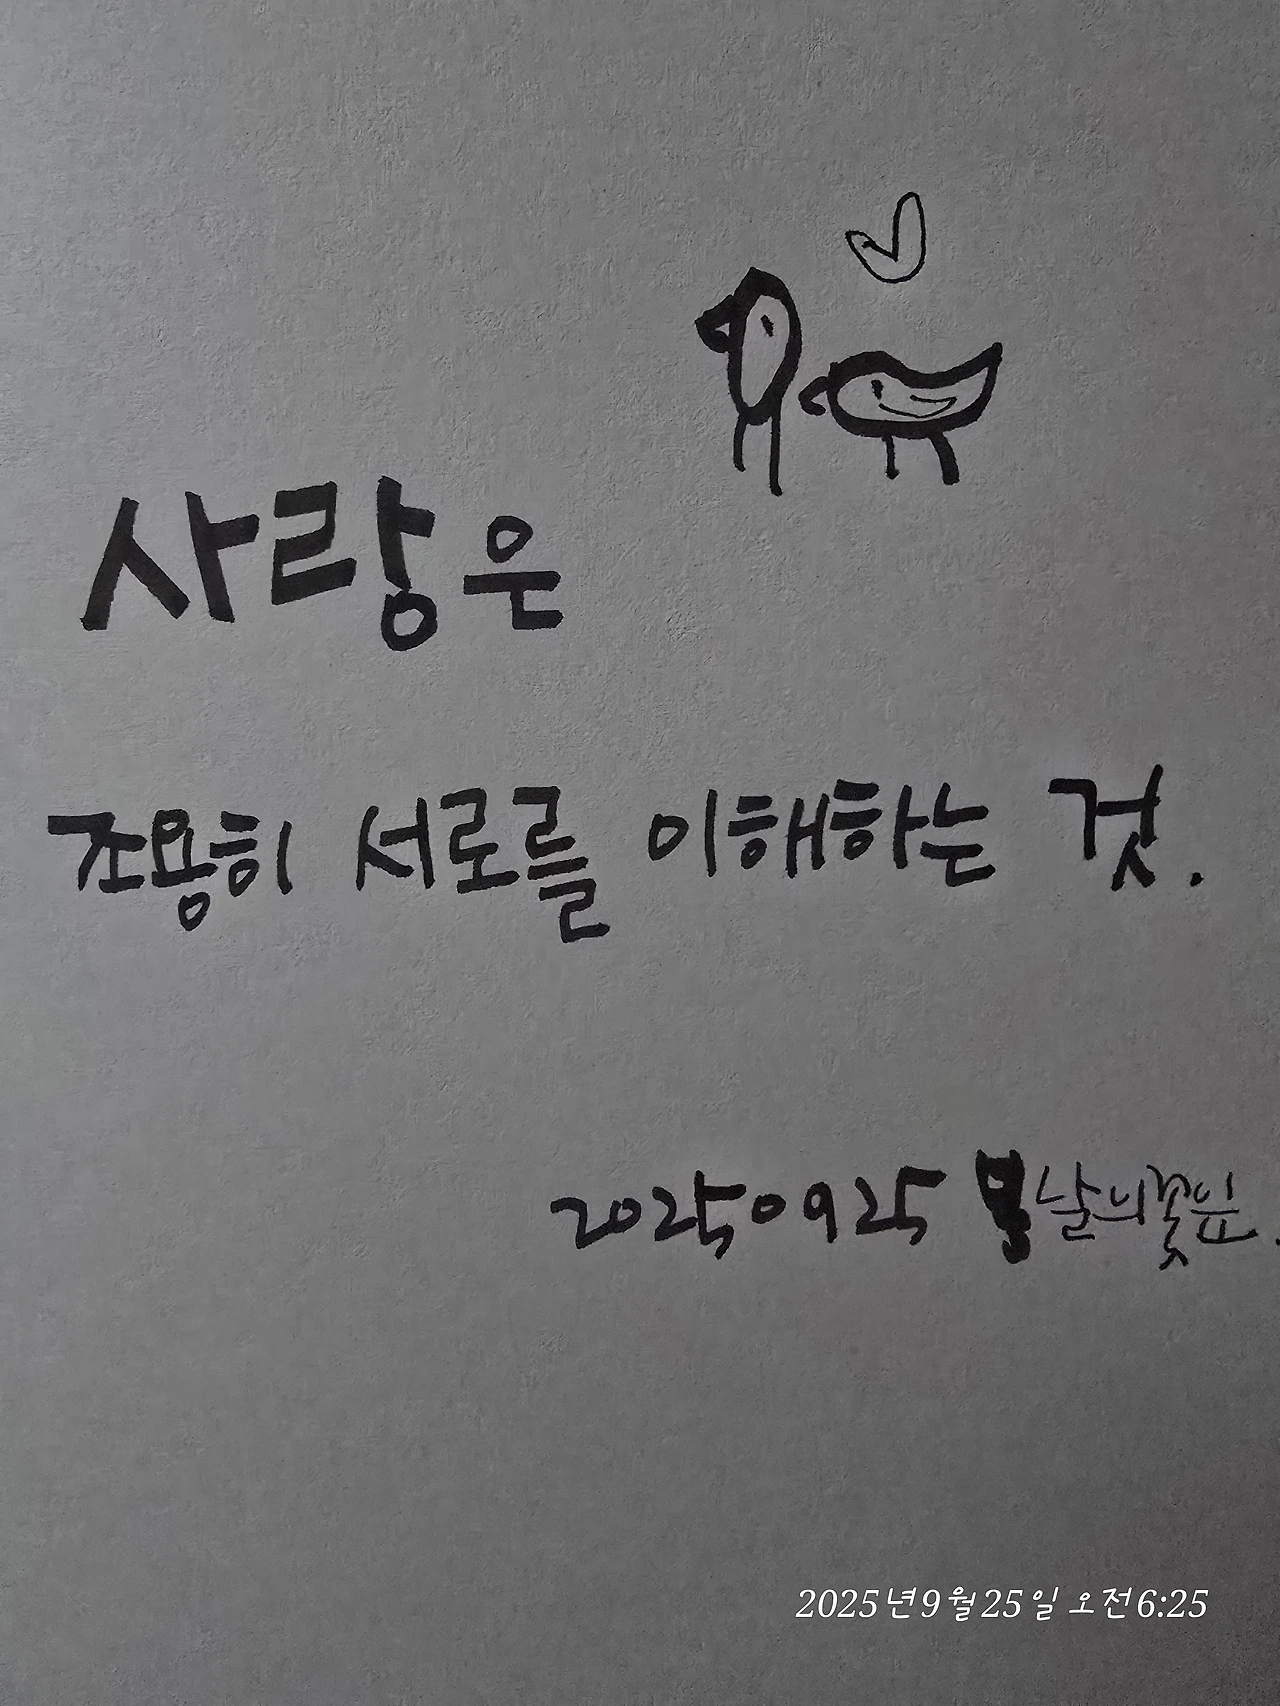 사랑은
조용히 서로를 이해하는 것.
20250925 봄날의꽃잎.
2025년 9월 25일 오전 6:25